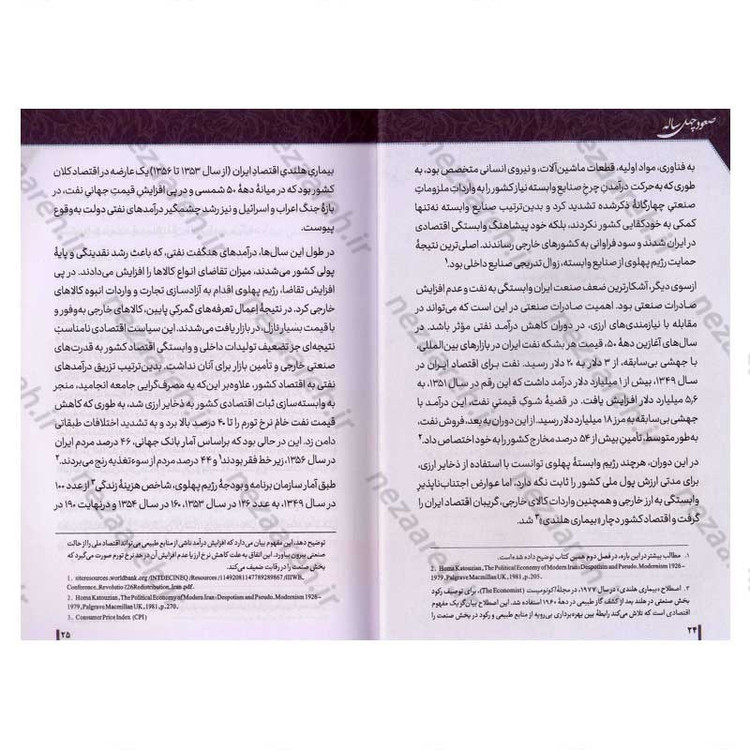 صعود چهل ساله
به فناوری، مواد اولیه، قطعات ماشین‌آلات، و نیروی انسانی متخصص بود، به
طوری که به‌حرکت درآمدن چرخ صنایع وابسته نیاز کشور را به واردات ملزومات
صنعتی چهارگانهٔ ذکرشده تشدید کرد و بدین‌ترتیب صنایع وابسته نه‌تنها
کمکی به خودکفایی کشور نکردند، بلکه خود پیشاهنگ وابستگی اقتصادی
در ایران شدند و سود فراوانی به کشورهای خارجی رساندند. اصلی‌ترین نتیجهٔ
حمایت رژیم پهلوی از صنایع وابسته، زوال تدریجی صنایع داخلی بود.۱
ازسوی دیگر، آشکارترین ضعف صنعت ایران وابستگی به نفت و عدم افزایش
صادرات صنعتی بود. اهمیت صادرات صنعتی در این است که می‌تواند در
مقابله با نیازمندی‌های ارزی، در دوران کاهش درآمد نفتی مؤثر باشد. در
سال‌های آغازین دههٔ ۵۰، قیمت هر بشکه نفت ایران در بازارهای بین‌المللی،
با جهشی بی‌سابقه، از ۳ دلار به ۲۰ دلار رسید. نفت برای اقتصاد ایران در
سال ۱۳۴۹، بیش از ۱ میلیارد دلار درآمد داشت که این رقم در سال ۱۳۵۱، به
۵,۶ میلیارد دلار افزایش یافت. در قضیهٔ شوک قیمتی نفت، این درآمد با
جهشی بی‌سابقه به مرز ۱۸ میلیارد دلار رسید. از این دوران به بعد، فروش نفت،
به‌طور متوسط، تأمین بیش از ۵۴ درصد مخارج کشور را به خود اختصاص داد.۲
در این دوران، هرچند رژیم وابستهٔ پهلوی توانست با استفاده از ذخایر ارزی،
برای مدتی ارزش پول ملی کشور را ثابت نگه دارد، اما عوارض اجتناب‌ناپذیر
وابستگی به ارز خارجی و همچنین واردات کالای خارجی، گریبان اقتصاد ایران را
گرفت و اقتصاد کشور دچار «بیماری هلندی»۳ شد.
۱. مطالب بیشتر در این باره، در فصل دوم همین کتاب توضیح داده شده‌است.
2. Homa Katouzian, The Political Economy of Modern Iran: Despotism and Pseudo. Modernism 1926–
1979, Palgrave Macmillan UK, 1981, p.205.
۳. اصطلاح «بیماری هلندی»، در سال ۱۹۷۷، در مجلهٔ اکونومیست (The Economist)، برای توصیف رکود
بخش صنعتی در هلند بعد از کشف گاز طبیعی در دههٔ ۱۹۶۰ استفاده شد. این اصطلاح بیان‌گر یک مفهوم
اقتصادی است که تلاش می‌کند رابطهٔ بین بهره‌برداری بی‌رویه از منابع طبیعی و رکود در بخش صنعت را
۲۴
بیماری هلندی اقتصاد ایران (از سال ۱۳۵۳ تا ۱۳۵۶) یک عارضه در اقتصاد کلان
کشور بود که در میانهٔ دههٔ ۵۰ شمسی و در پی افزایش قیمت جهانی نفت، در
بازهٔ جنگ اعراب و اسرائیل و نیز رشد چشمگیر درآمدهای نفتی دولت به‌وقوع
پیوست.
در طول این سال‌ها، درآمدهای هنگفت نفتی، که باعث رشد نقدینگی و پایهٔ
پولی کشور می‌شدند، میزان تقاضای انواع کالاها را افزایش می‌دادند. در پی
افزایش تقاضا، رژیم پهلوی اقدام به آزادسازی تجارت و واردات انبوه کالاهای
خارجی کرد. در نتیجهٔ اِعمال تعرفه‌های گمرکی پایین، کالاهای خارجی به‌وفور و
با قیمت بسیار نازل، در بازار یافت می‌شدند. این سیاست اقتصادی نامناسب
نتیجه‌ای جز تضعیف تولیدات داخلی و وابستگی اقتصاد کشور به قدرت‌های
صنعتی خارجی و تأمین بازار برای آنان نداشت. بدین‌ترتیب تزریق درآمدهای
نفتی به اقتصاد کشور، علاوه‌بر این‌که به مصرف‌گرایی جامعه انجامید، منجر
به وابسته‌سازی ثبات اقتصادی کشور به ذخایر ارزی شد، به طوری که کاهش
قیمت نفت خام نرخ تورم را تا ۴۰ درصد بالا برد و به تشدید اختلافات طبقاتی
دامن زد. این در حالی بود که براساس آمار بانک جهانی، ۴۶ درصد مردم ایران
در سال ۱۳۵۶، زیر خط فقر بودند۱ و ۴۴ درصد مردم از سوءتغذیه رنج می‌بردند.۲
طبق آمار سازمان برنامه و بودجهٔ رژیم پهلوی، شاخص هزینهٔ زندگی۳ از عدد ۱۰۰
در سال ۱۳۴۹، به عدد ۱۲۶ در سال ۱۳۵۳، ۱۶۰ در سال ۱۳۵۴ و درنهایت ۱۹۰ در
توضیح دهد، این مفهوم بیان می‌دارد که افزایش درآمد ناشی از منابع طبیعی می‌تواند اقتصاد ملی را از حالت
صنعتی بیرون بیاورد. این اتفاق به علت کاهش نرخ ارز یا عدم افزایش آن در حد نرخ تورم صورت می‌گیرد که
بخش صنعت را در رقابت ضعیف می‌کند.
1. siteresources.worldbank.org/INTDECINEQ/Resources/1149208114778928986­7/IIIWB_
Conference_Revolutio126Redistribution_Iran.pdf.
2. Homa Katouzian, The Political Economy of Modern Iran: Despotism and Pseudo. Modernism 1926–
1979, Palgrave Macmillan UK, 1981, p.270.
3. Consumer Price Index (CPI)
۲۵
nezaareh.ir